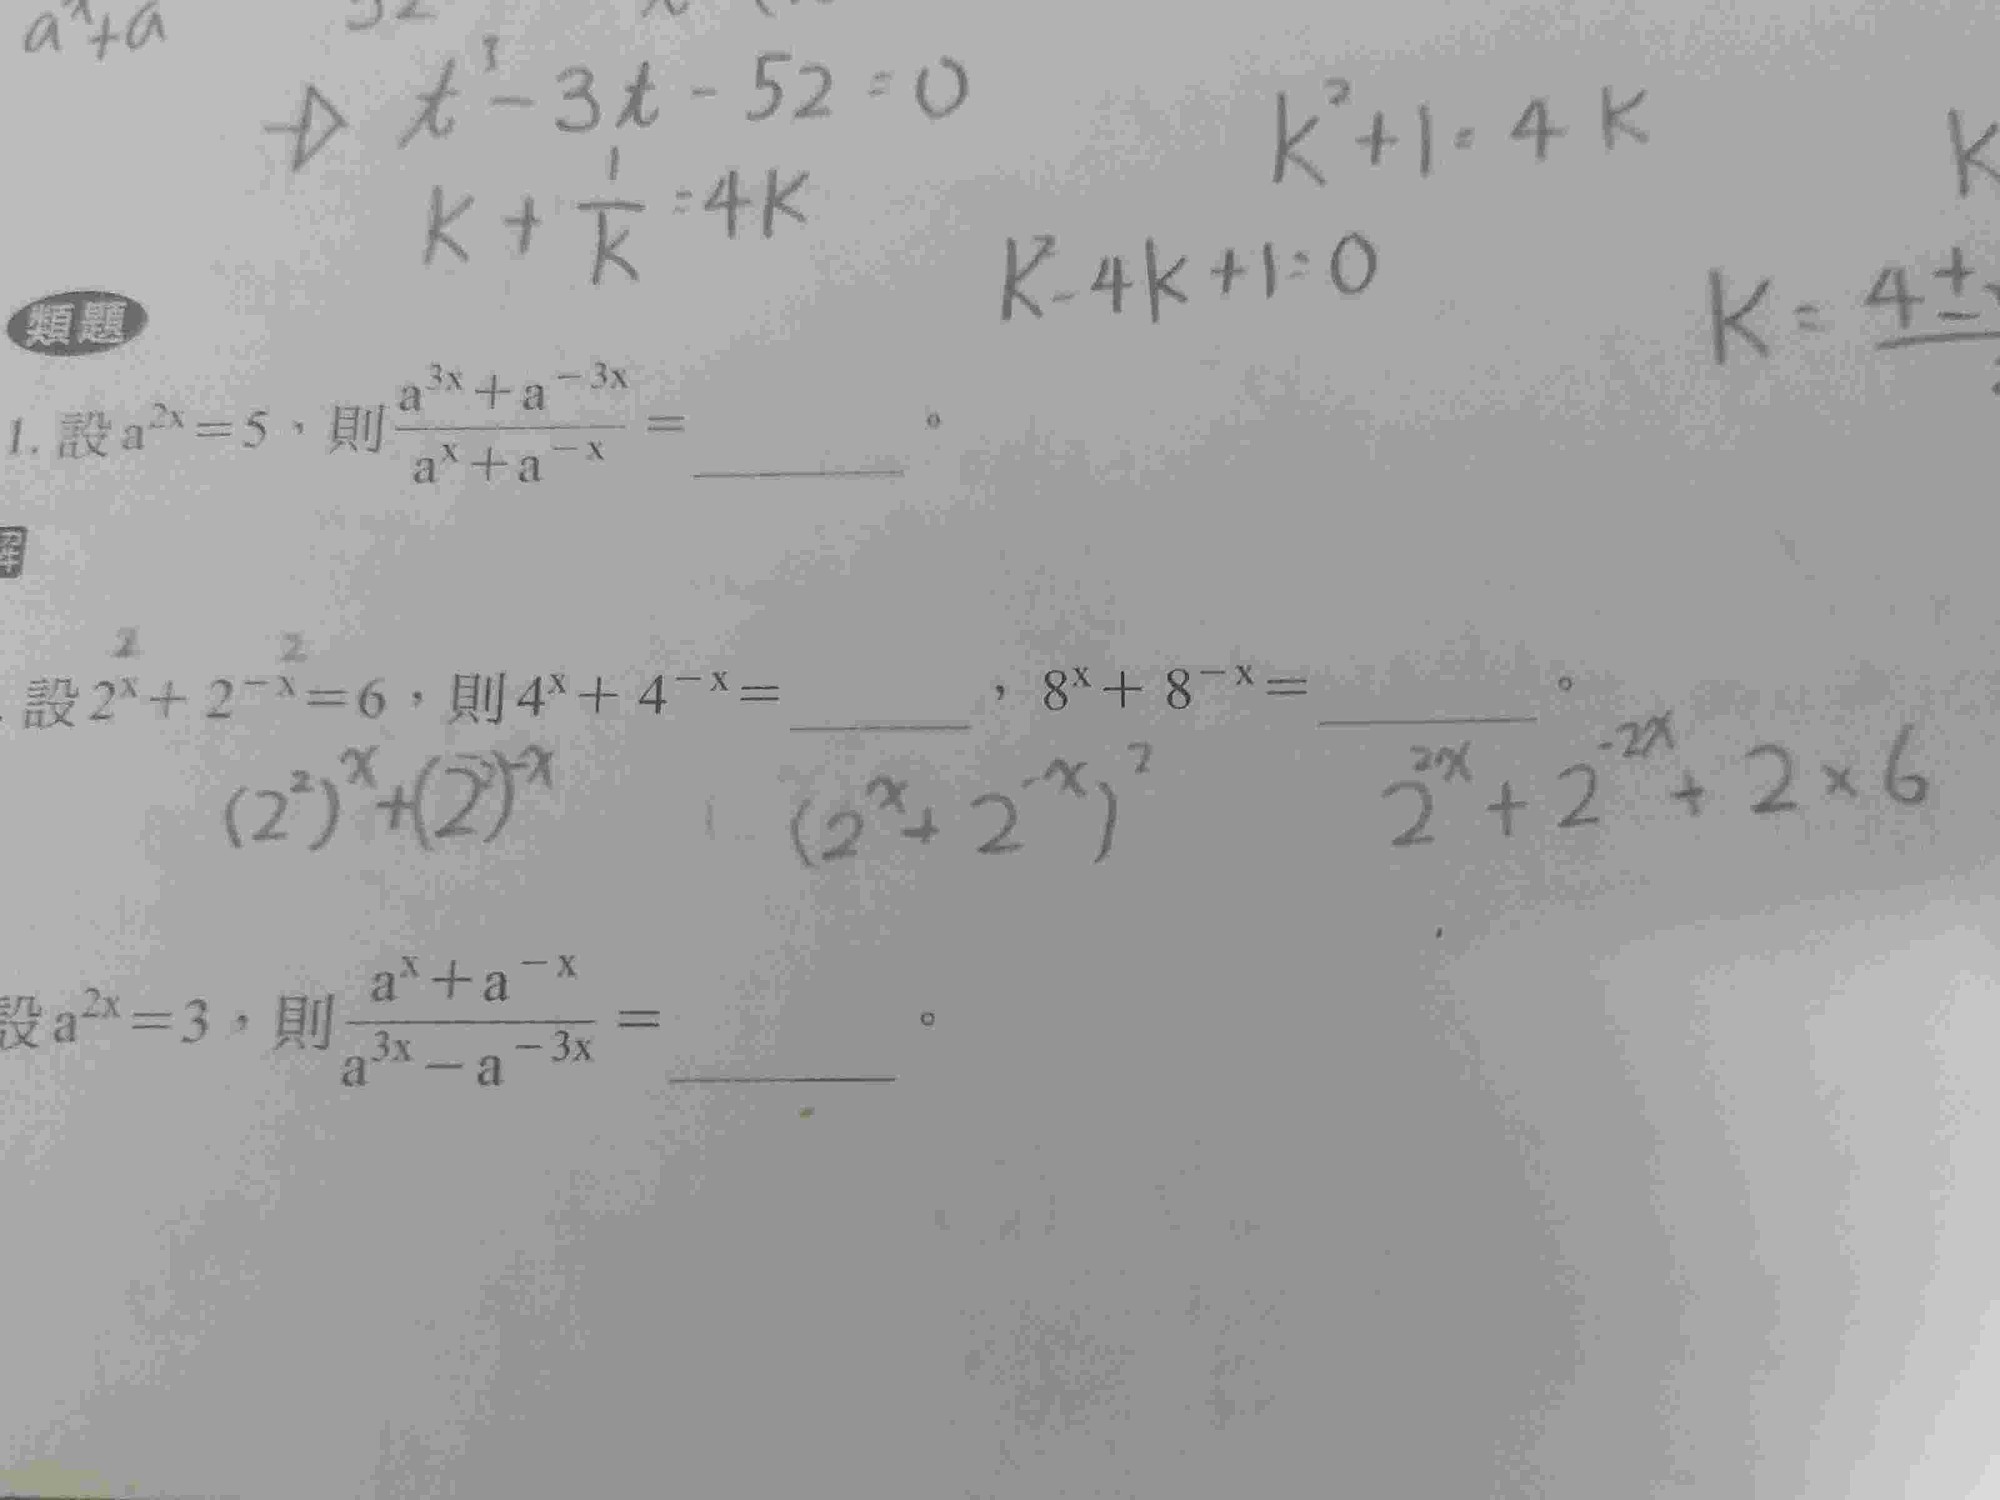 aˣ+a
t³-3t-52=0
k²+1=4k
k+1/k=4k
k²-4k+1=0
k=4±
類題
1. 設a²ˣ=5，則(a³ˣ+a⁻³ˣ)/(aˣ+a⁻ˣ)=＿＿＿。
解
2 2
設2ˣ+2⁻ˣ=6，則4ˣ+4⁻ˣ=＿＿＿，8ˣ+8⁻ˣ=＿＿＿。
(2²)ˣ+(2²)⁻ˣ (2ˣ+2⁻ˣ)² 2²ˣ+2⁻²ˣ+2×6
設a²ˣ=3，則(aˣ+a⁻ˣ)/(a³ˣ-a⁻³ˣ)=＿＿＿。